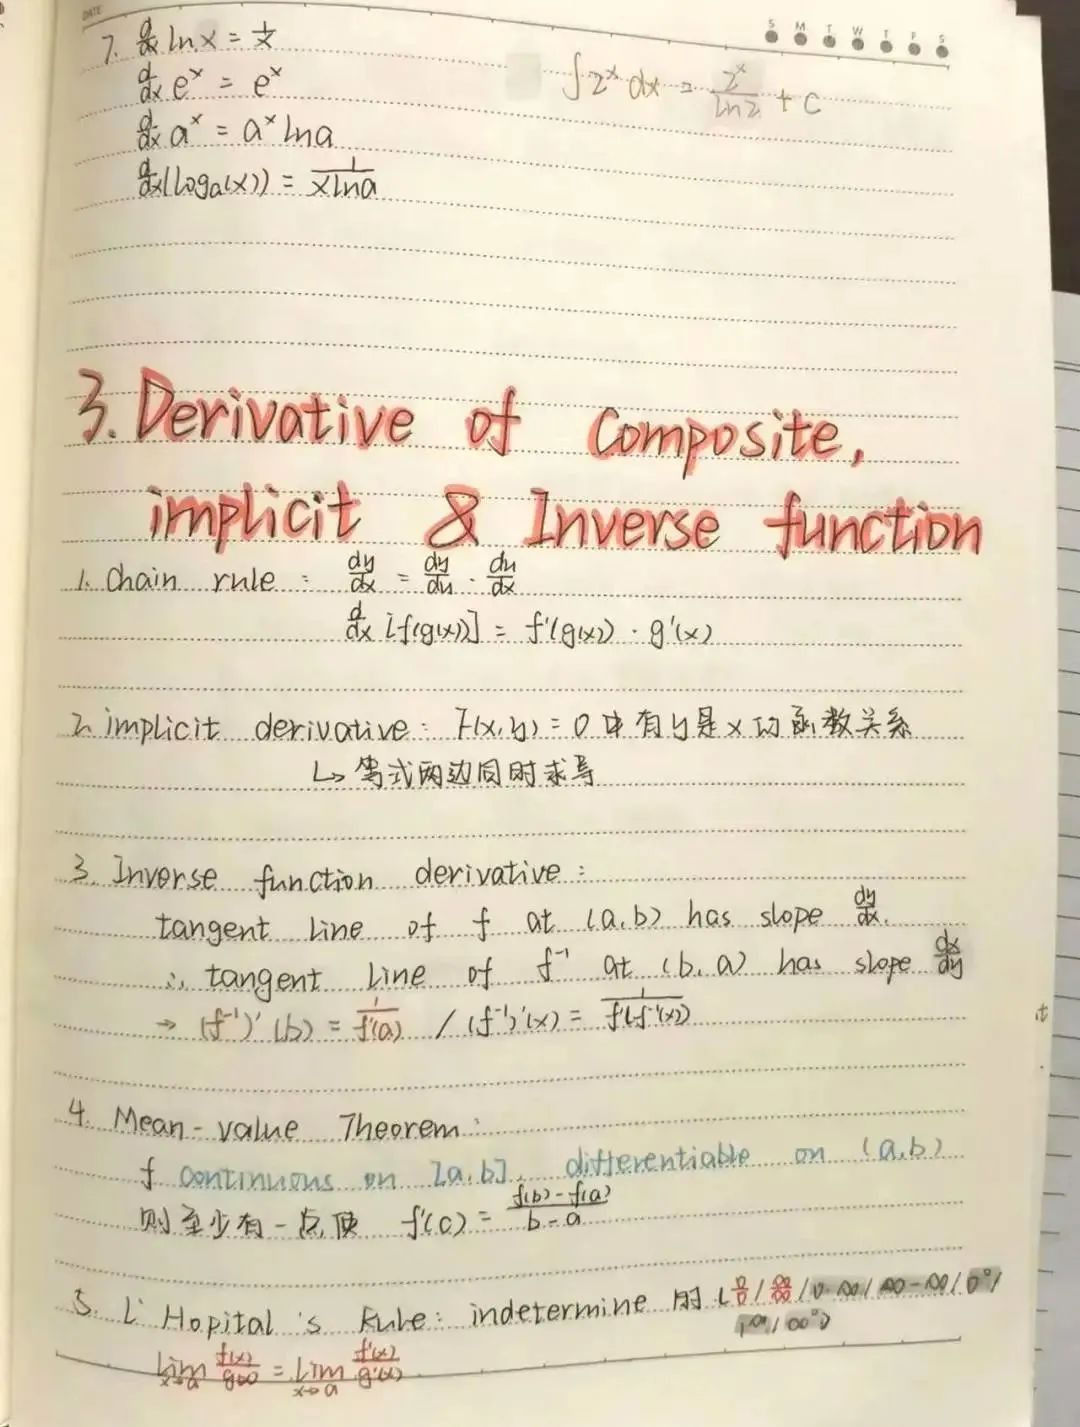 DATE
S M T W T F S
7. d/dx ln x = 1/x
∫2ˣ dx = 2ˣ/ln2 + C
d/dx eˣ = eˣ
d/dx aˣ = aˣ ln a
d/dx(loga(x)) = 1/(x ln a)
3. Derivative of Composite,
implicit & Inverse function
1. Chain rule : dy/dx = dy/du · du/dx
d/dx [f(g(x))] = f'(g(x)) · g'(x)
2. implicit derivative: F(x,y) = 0 中有y是x的函数关系
↳ 等式两边同时求导
3. Inverse function derivative :
tangent line of f at (a,b) has slope dy/dx.
∴ tangent line of f⁻¹ at (b,a) has slope dx/dy
→ (f⁻¹)'(b) = 1/f'(a) / (f⁻¹)'(x) = 1/f'(f⁻¹(x))
4. Mean-value Theorem :
f continuous on [a,b], differentiable on (a,b)
则至少有一点,使 f'(c) = (f(b)-f(a))/(b-a)
5. L'Hopital's Rule: indetermine 时 (0/0 / ∞/∞ / 0·∞ / ∞-∞ / 0⁰ /
1^∞ / ∞⁰)
lim x→a f(x)/g(x) = lim x→a f'(x)/g'(x)